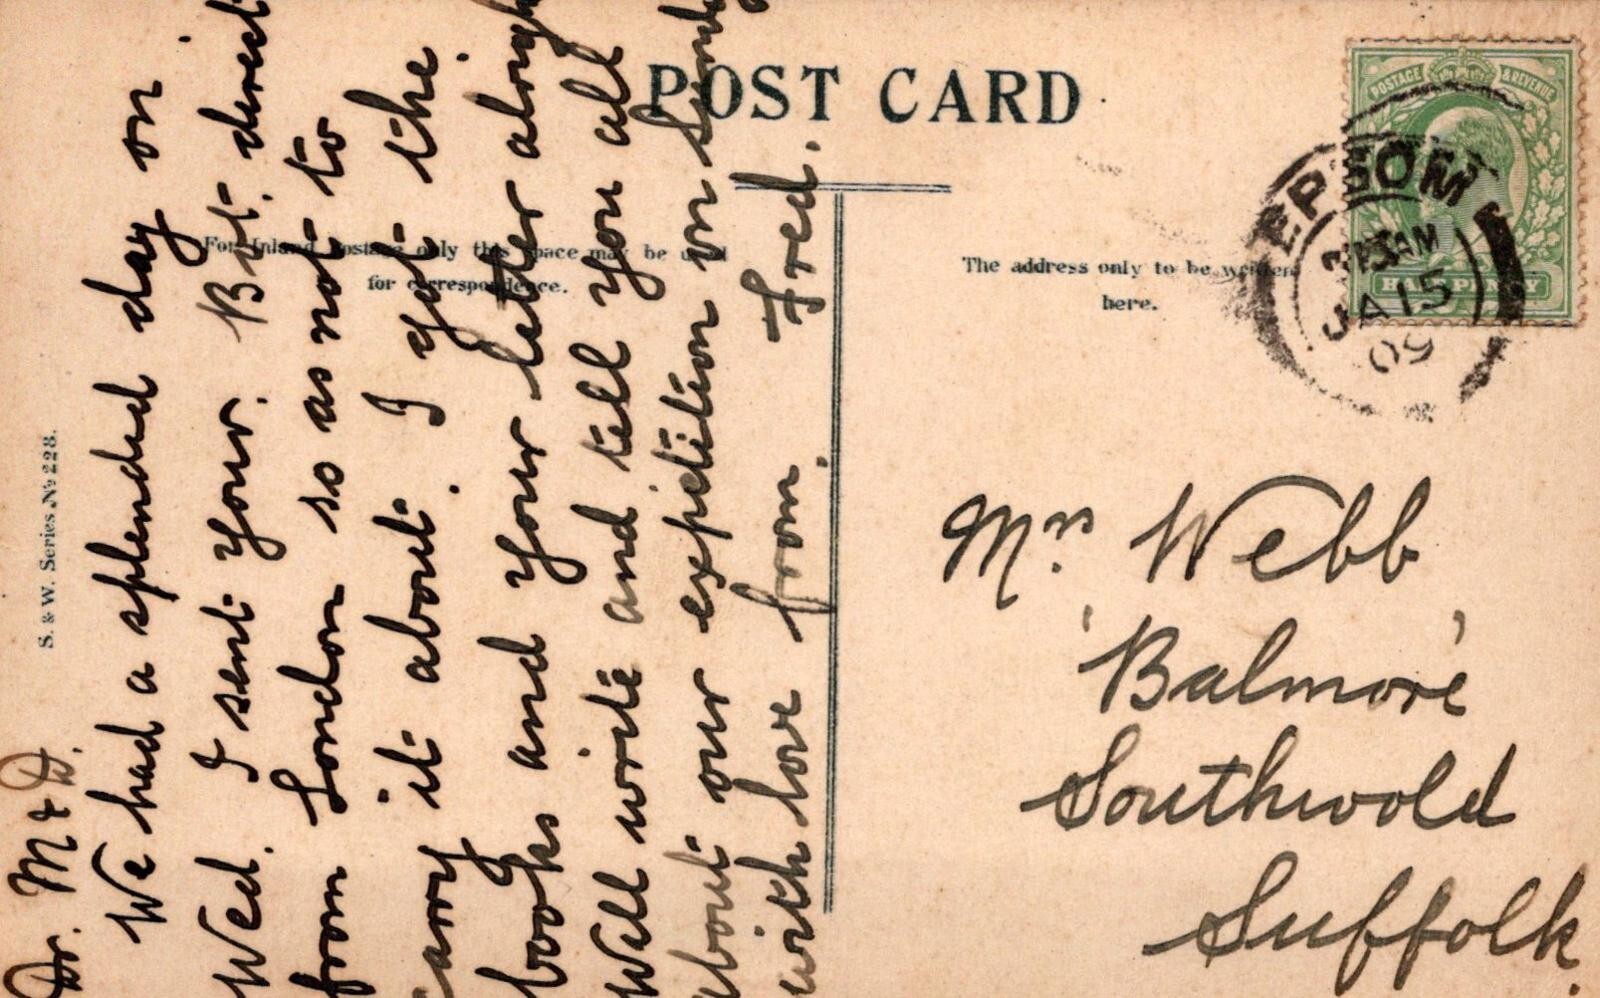 POST CARD
For Inland Postage only this space may be used
for correspondence.
The address only to be written
here.
S. & W. Series No 228.
POSTAGE & REVENUE
HALFPENNY
EPSOM
JA 15
09
Dr. M & D.
We had a splended day on
Wed. I sent your. But direct
from London so as not to
carry it about. I got the
books and your letter alright
Will write and tell you all
about our expetition on Sunday
with love from. Fred.
Mrs Webb
'Balmore'
Southwold
Suffolk.